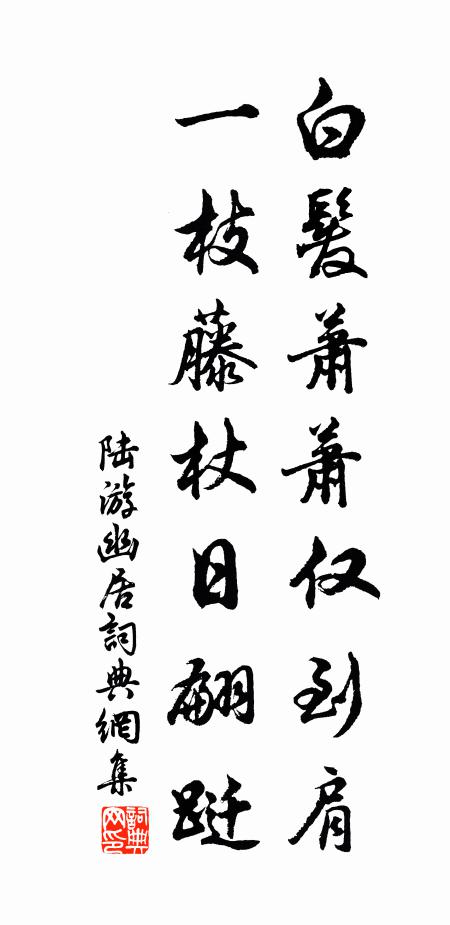 白髮蕭蕭仅到肩
一枝藤杖日翩跹
陆游幽居詞典網集
詞典
网印